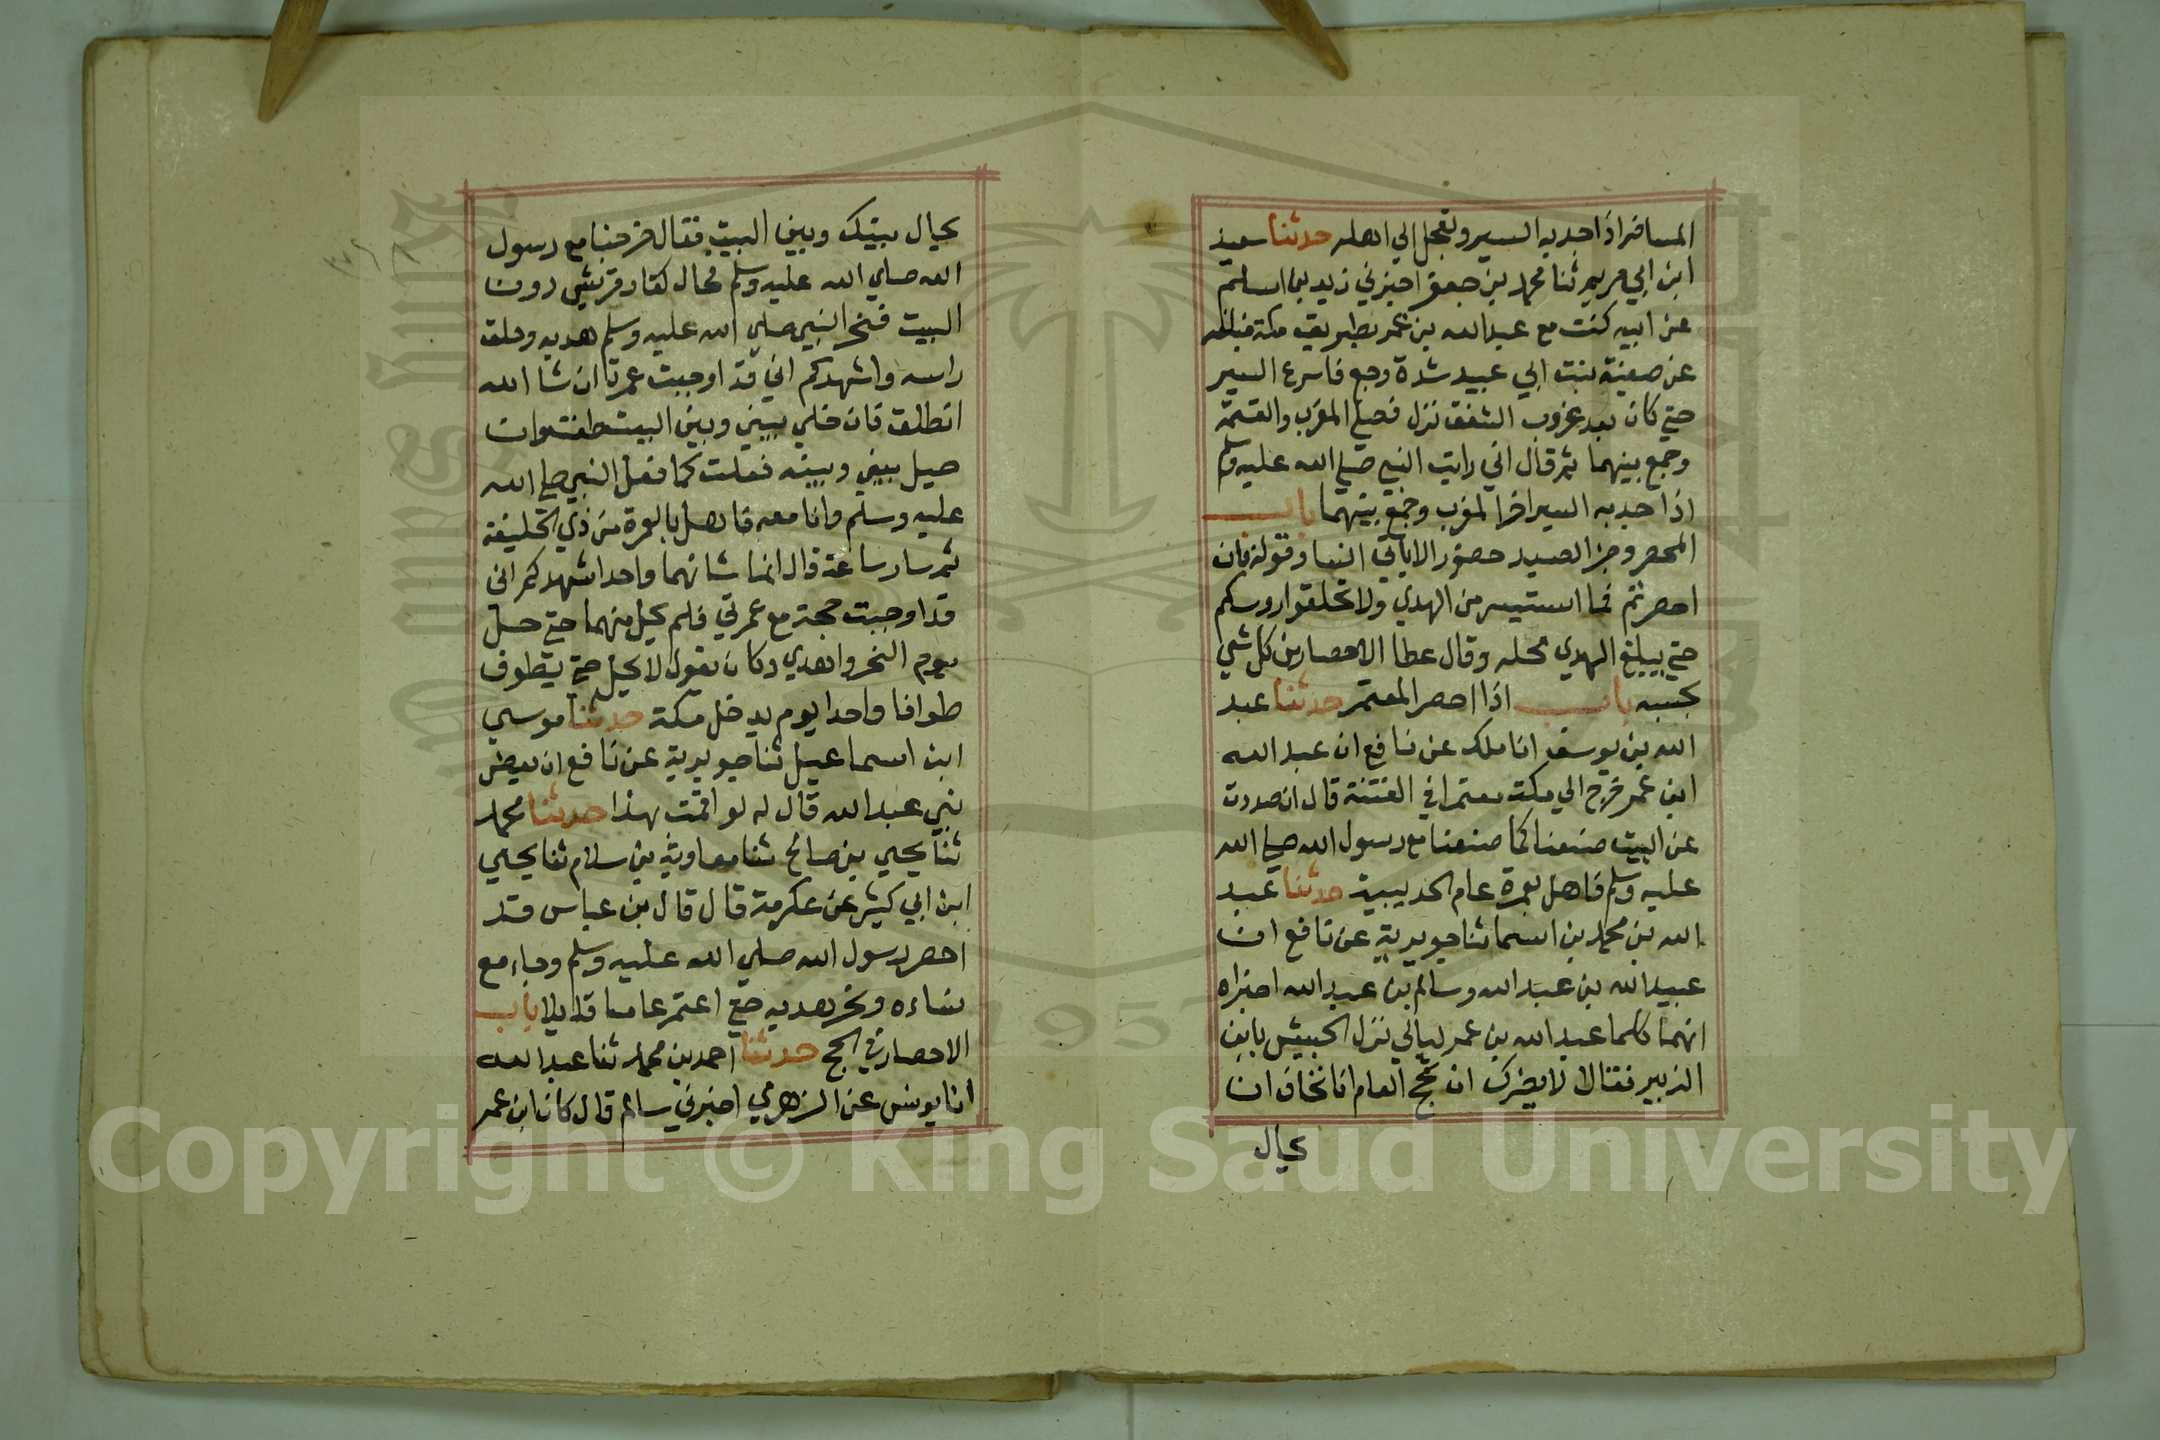 المسافر اذا جد به السير وتعجل الي اهله حدثنا سعيد
ابن ابي مريم ثنا محمد بن جعفر اخبرني زيد بن اسلم
عن ابيه كنت مع عبد الله بن عمر بطريق مكة فبلغه
عن صفية بنت ابي عبيد شدة وجع فاسرع السير
حتي كان بعد غروب الشفق نزل فصلي المغرب والعتمة
وجمع بينهما ثم قال اني رايت النبي صلي الله عليه وسلم
اذا جد به السير اخر المغرب وجمع بينهما باب
المحصر وجزا الصيد حصور الاياتي النسا وقوله فان
احصرتم فما استيسر من الهدي ولا تحلقوا روسكم
حتي يبلغ الهدي محله وقال عطا الاحصار من كل شي
بحسبه باب اذا احصر المعتمر حدثنا عبد
الله بن يوسف انا ملك عن نافع ان عبد الله
ابن عمر خرج الي مكة معتمرا في الفتنة قال ان صددت
عن البيت صنعنا كما صنعنا مع رسول الله صلي الله
عليه وسلم فاهل بعمرة عام الحديبية حدثنا عبد
الله بن محمد بن اسما ثنا جويرية عن نافع ان
عبيد الله بن عبد الله وسالم بن عبد الله اخبراه
انهما كلما عبد الله بن عمر ليالي نزل الجيش بابن
الزبير فقالا لا يضرك ان تحج العام انا نخاف ان
يحال
يحال بينك وبين البيت فقال خرجنا مع رسول
الله صلي الله عليه وسلم فحال كفار قريش دون
البيت فنحر النبي صلي الله عليه وسلم هديه وحلق
راسه واشهدكم اني قد اوجبت عمرة ان شا الله
انطلق فان خلي بيني وبين البيت طفت وان
حيل بيني وبينه فعلت كما فعل النبي صلي الله
عليه وسلم وانا معه فاهل بالعمرة من ذي الحليفة
ثم سار ساعة قال انما شانهما واحد اشهدكم اني
قد اوجبت حجة مع عمرتي فلم يحل منهما حتي حل
يوم النحر واهدي وكان يقول لا يحل حتي يطوف
طوافا واحدا يوم يدخل مكة حدثنا موسي
ابن اسماعيل ثنا جويرية عن نافع ان بعض
بني عبد الله قال له لو اقمت بهذا حدثنا محمد
ثنا يحيي بن صالح ثنا معاوية بن سلام ثنا يحيي
ابن ابي كثير عن عكرمة قال قال بن عباس قد
احصر رسول الله صلي الله عليه وسلم وجامع
نساءه ونحر هديه حتي اعتمر عاما قابلا باب
الاحصار في الحج حدثنا احمد بن محمد ثنا عبد الله
انا يونس عن الزهري اخبرني سالم قال كان ابن عمر
Copyright © King Saud University
1957